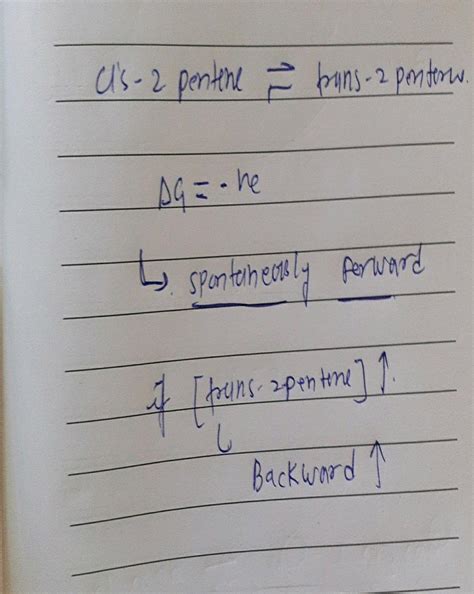 cis-2 pentene ⇌ trans-2 pentene.
ΔG = -ve
↳ spontaneously forward
if [trans-2pentene] ↑.
↳
Backward ↑